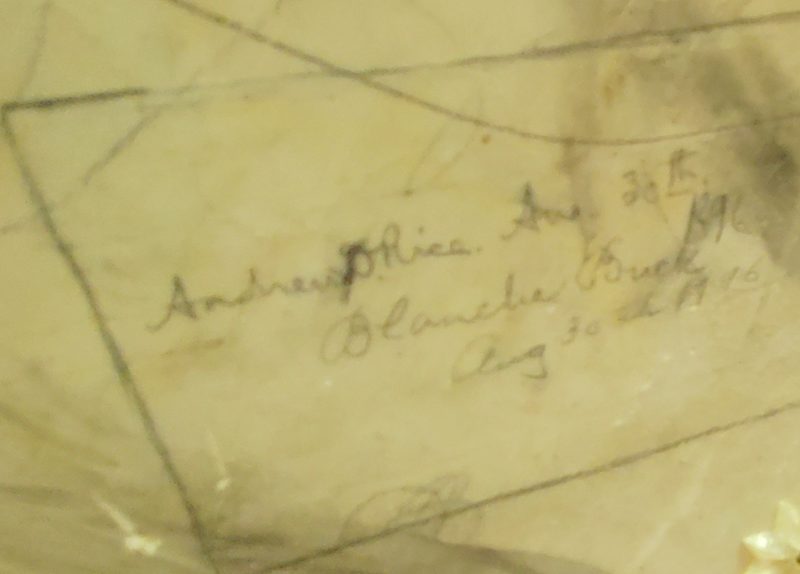 Andrew P. Rice. Aug. 30th.
1896
Blanche Buck
Aug 30th 1896